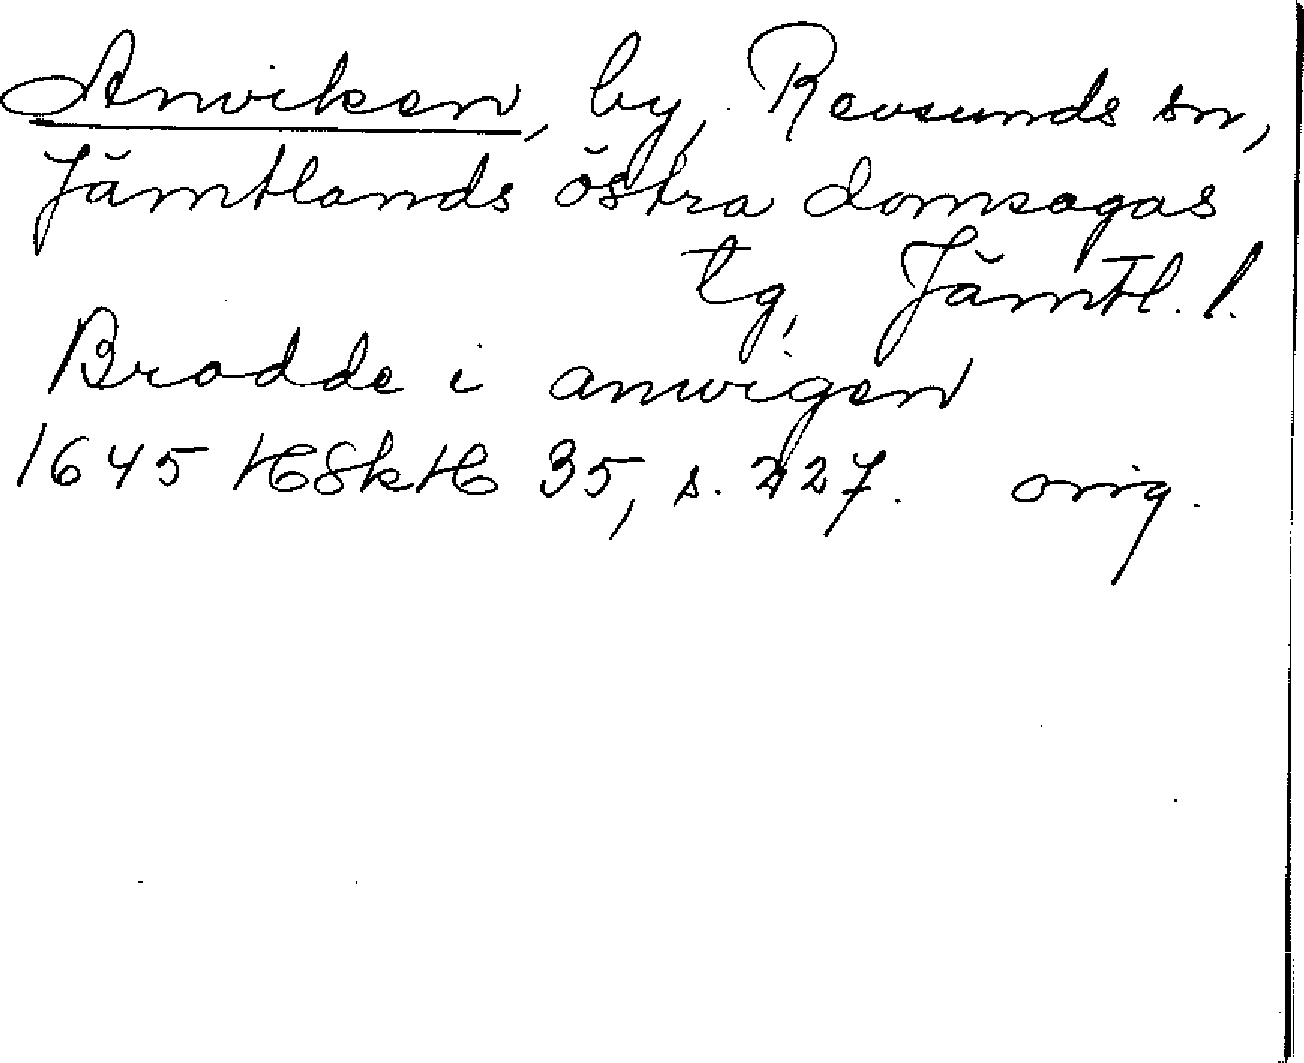 Anviken, by, Revsunds sn,
Jämtlands östra domsagas
tg, Jämtl. l.
Brodde i anwigen
1645 HSkH 35, s. 227. orig.